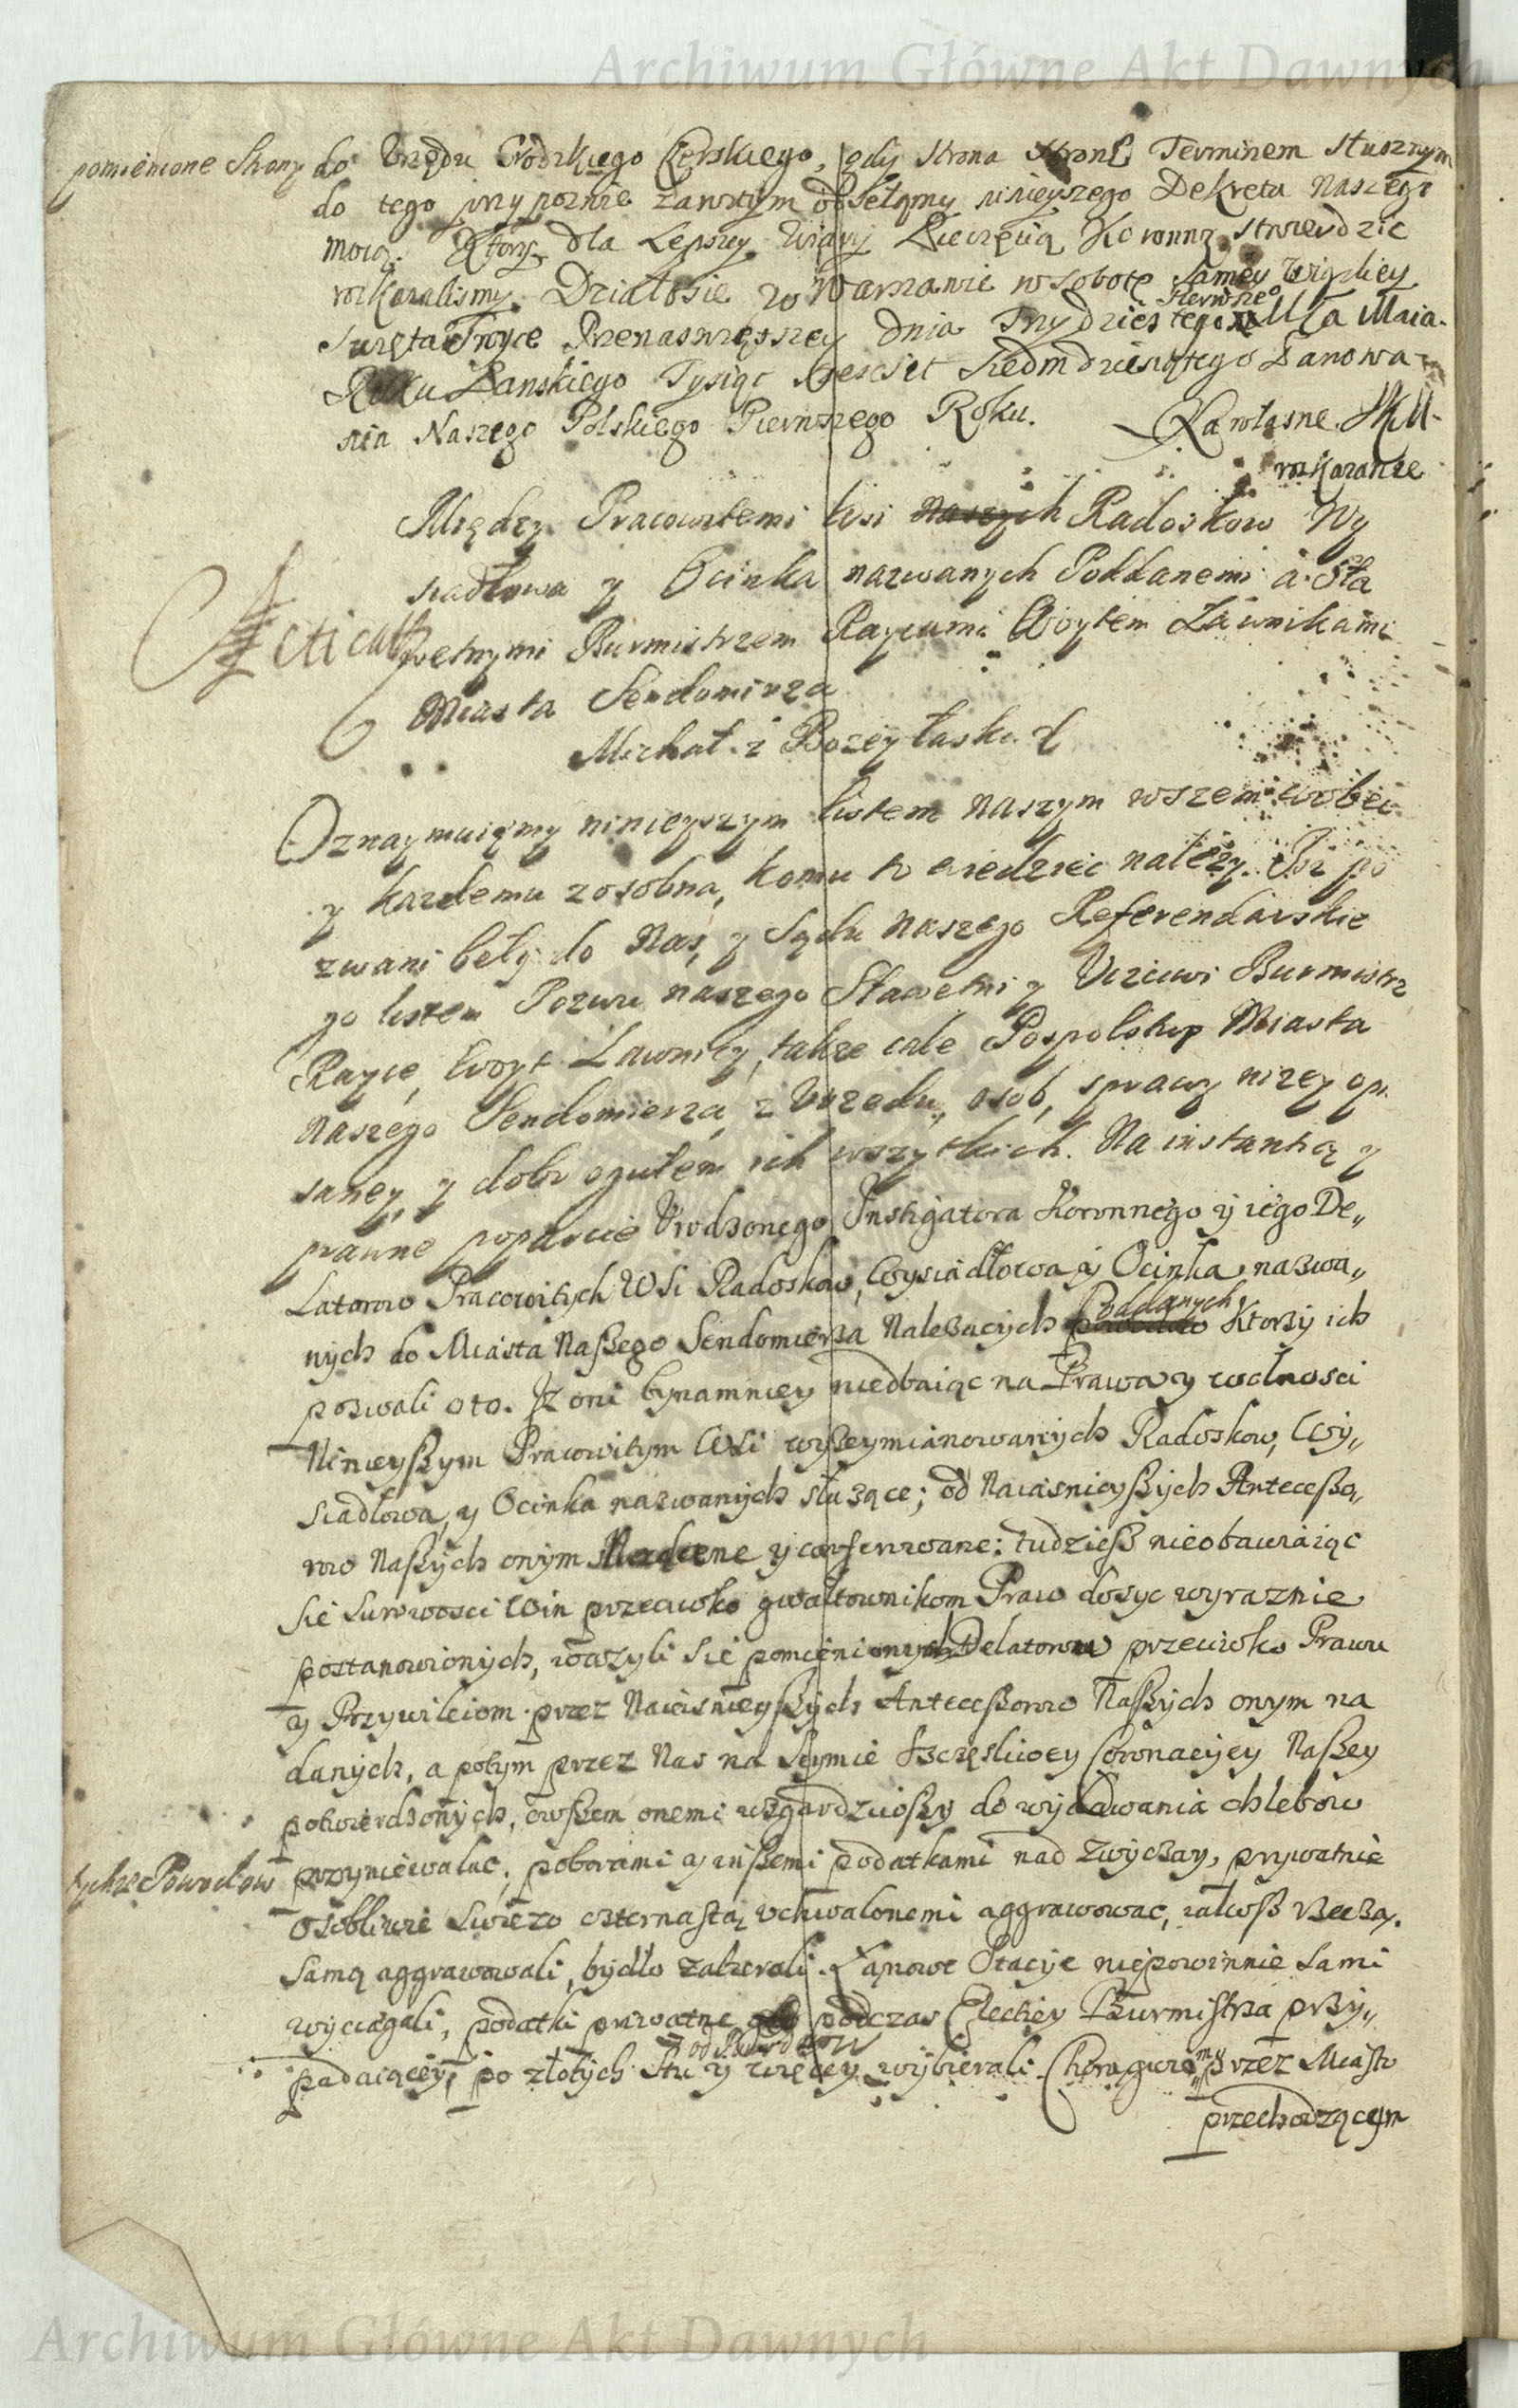 Archiwum Główne Akt Dawnych
pomienione Strony do Vrzędu Grodzkiego Czerskiego, gdy strona stronę Terminem słusznym
do tego przypoznie zawitym obsełamy ninieyszego Dekretu Naszego
mocą. Ktory dla Lepszey Wiary Pieczęcią Koronną stwierdzic
rozkazalismy. Działosie w Warszawie w sobotę samey Wigiliey
Swięta Troyce Przenaswięszey dnia Trzydziestego Pierwszego Mca Maia.
Roku Panskiego Tysiąc szescset siedmdziesiątego Panowa-
nia Naszego Polskiego Pierwszego Roku. Na własne JKM-
rozkazanie
Między Pracowitemi Wsi naszych Radoskow Wy
siadłowa y Ocinka nazwanych Poddanemi a Sła
Acticat
wetnymi Burmistrzem Raycami Woytem Ławnikami
Miasta Sendomirza
Michał z Bozey łaski
Oznaymuięmy ninieyszym listem naszym wszem wobec
y kazdemu zosobna, komu to wiedziec nalezy. Isz po
zwani beły do Nas, y Sądu naszego Referendarskie
go listem Pozwu naszego Sławetni y Vczciwi Burmistrz
Rayce, Woyt Ławnicy, takze całe Pospolstwo Miasta
Naszego Sendomierza, z Vrzedu, osob, sprawy nizey opi
saney, y dobr ogułem ich wszytkich. Na instantią y
prawne poparcie Vrodzonego Instigatora Koronnego y iego De„
Latorow Pracowitych Wsi Radoskow, Wysiadłowa y Ocinka nazwa„
nych do Miasta Naszego Sendomierza Nalezacych Poddanych Ktorzy ich
pozwali oto. Iz oni bynamniey niedbaiąc na Prawa y wolnosci
Ninieyszym Pracowitym Wsi wyzeymianowanych Radoskow, Wy„
siadłowa, y Ocinka nazwanych słuzące; od Naiasnieyszych Antecesso„
row Naszych onym Nadane y conferowane: tudziesz nieobawiaiąc
Sie surowosci Win przeciwko gwałtownikom Praw dosyc wyraznie
postanowionych, wazyli sie pomienionych Delatorow przeciwko Prawu
y Przywileiom przez Naiasnieyszych Antecessorow Naszych onym na
danych, a potym przez Nas na Seymie szczęsliwey Coronacyey Naszey
potwierdzonych, owszem onemi wzgardziwszy do wydawania chlebow
tychze Powodow przyniewalac, poborami y inszemi podatkami nad zwyczay, prywatnie
osobliwie swiezo czternastą vchwalonemi aggrawowac, iakosz rzeczą.
samą aggrawowali, bydło zabierali. Łanowe Stacye niepowinnie sami
wyciągali, podatki prywatne podczas Electiey Burmistrza przy„
padaiącey, po złotych stu y więcey od Powodow wybierali Chorągwiom przez Miasto
przechodzącym
Archiwum Główne Akt Dawnych